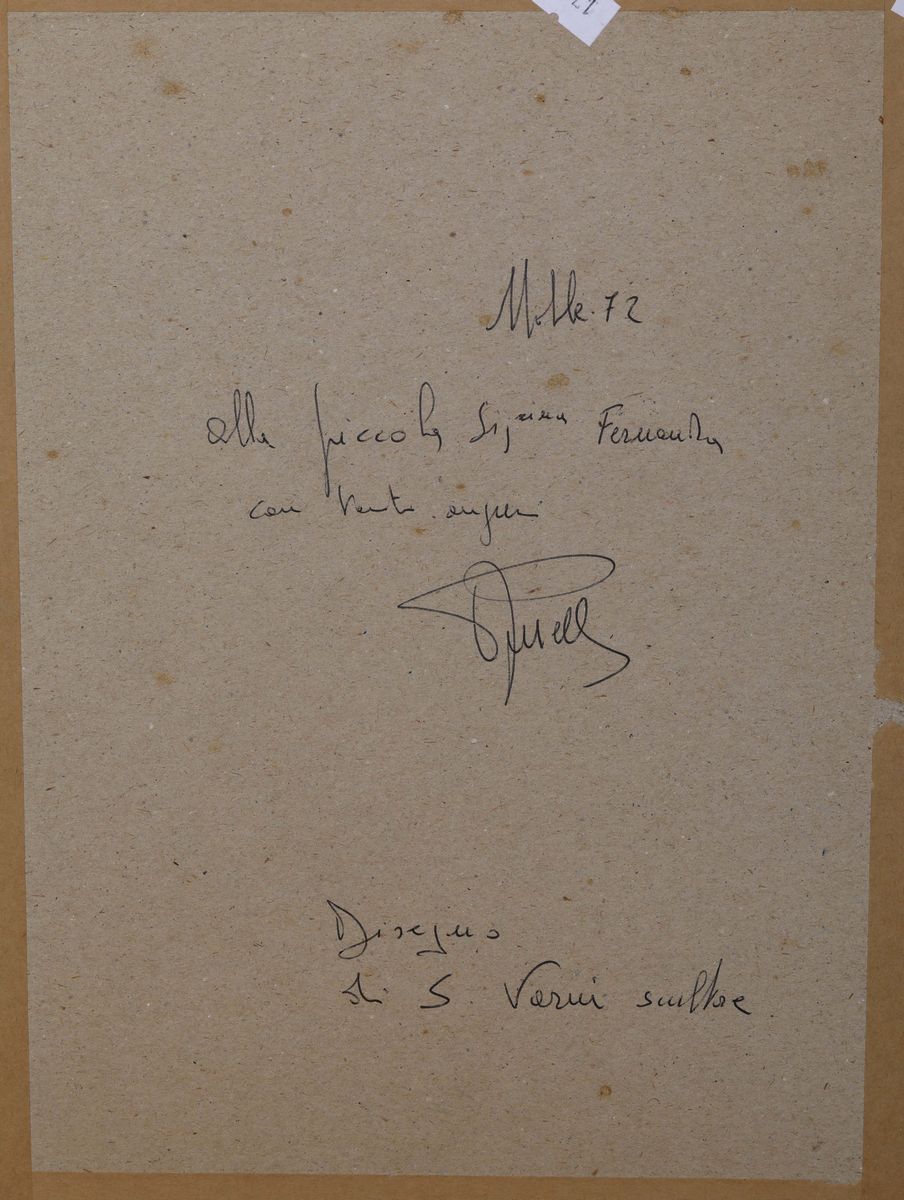 72
alla piccola Sig.ra Fernanda
con tanti auguri
Disegno
di S. Varni scultore